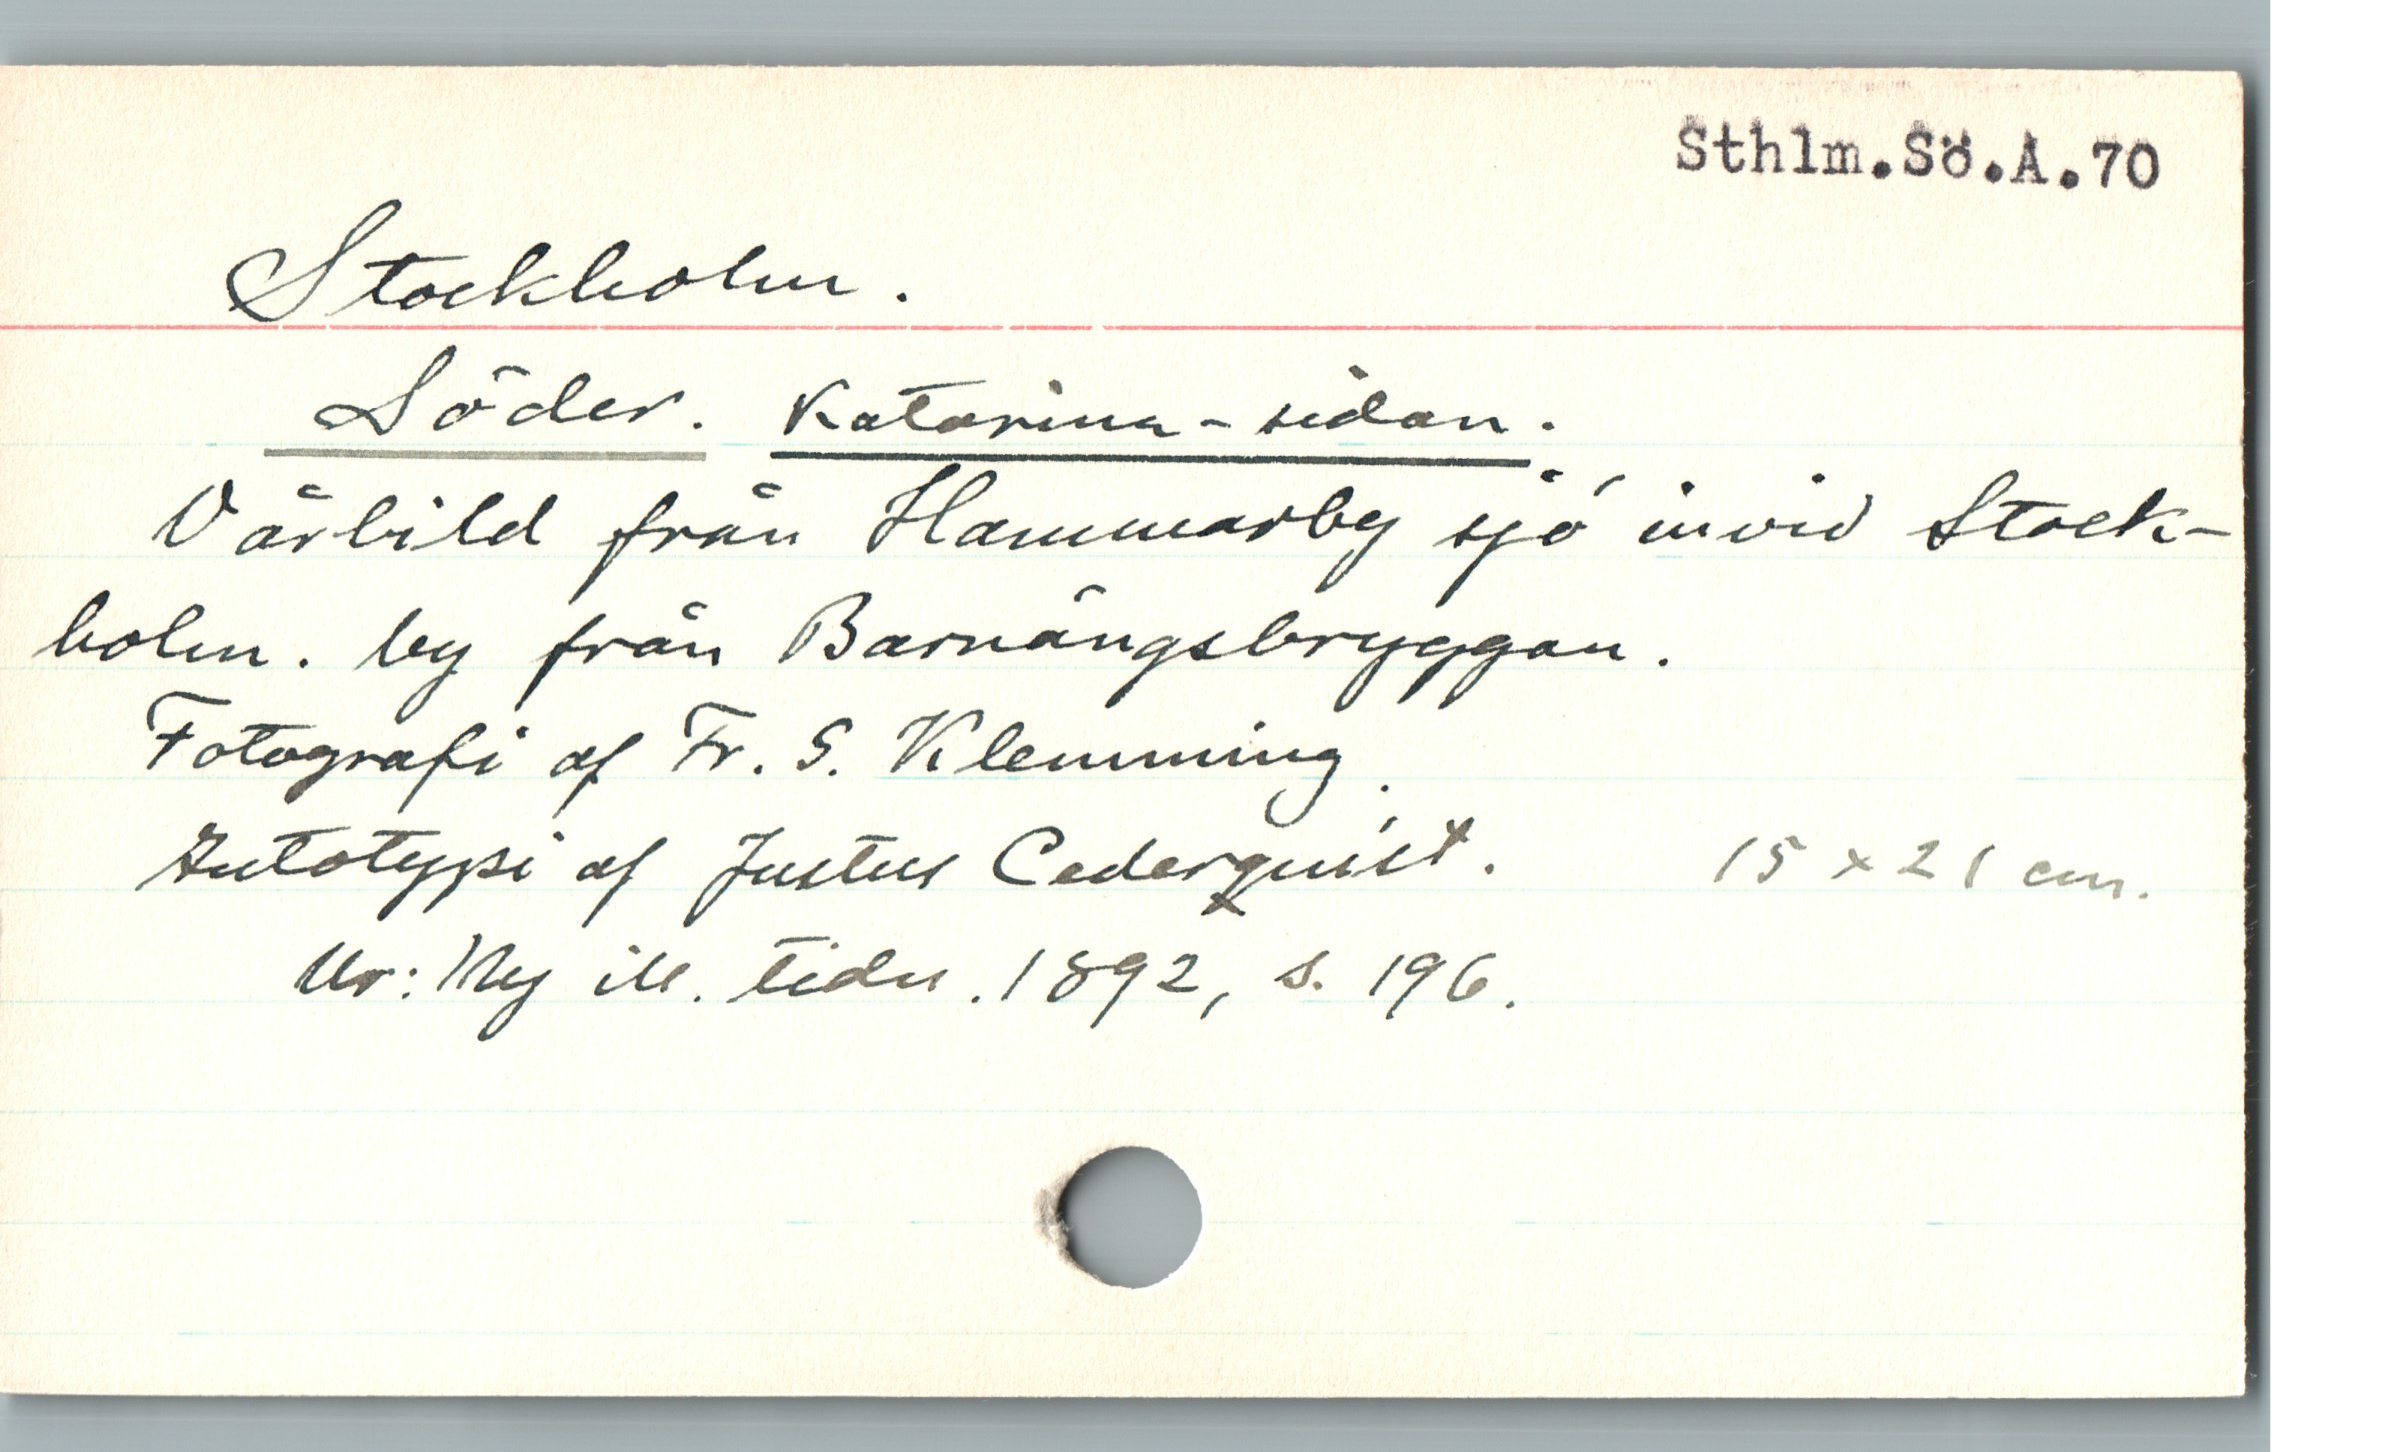 Sthlm.Sö.A.70
Stockholm.
Söder. Katarina-sidan.
Vårbild från Hammarby sjö invid Stock-
holm. Vy från Barnängsbryggan.
Fotografi af Fr. G. Klemming.
Autotypi af Justus Cederquist. 15 x 21 cm.
Ur: Ny ill. tidn. 1892, s. 196.